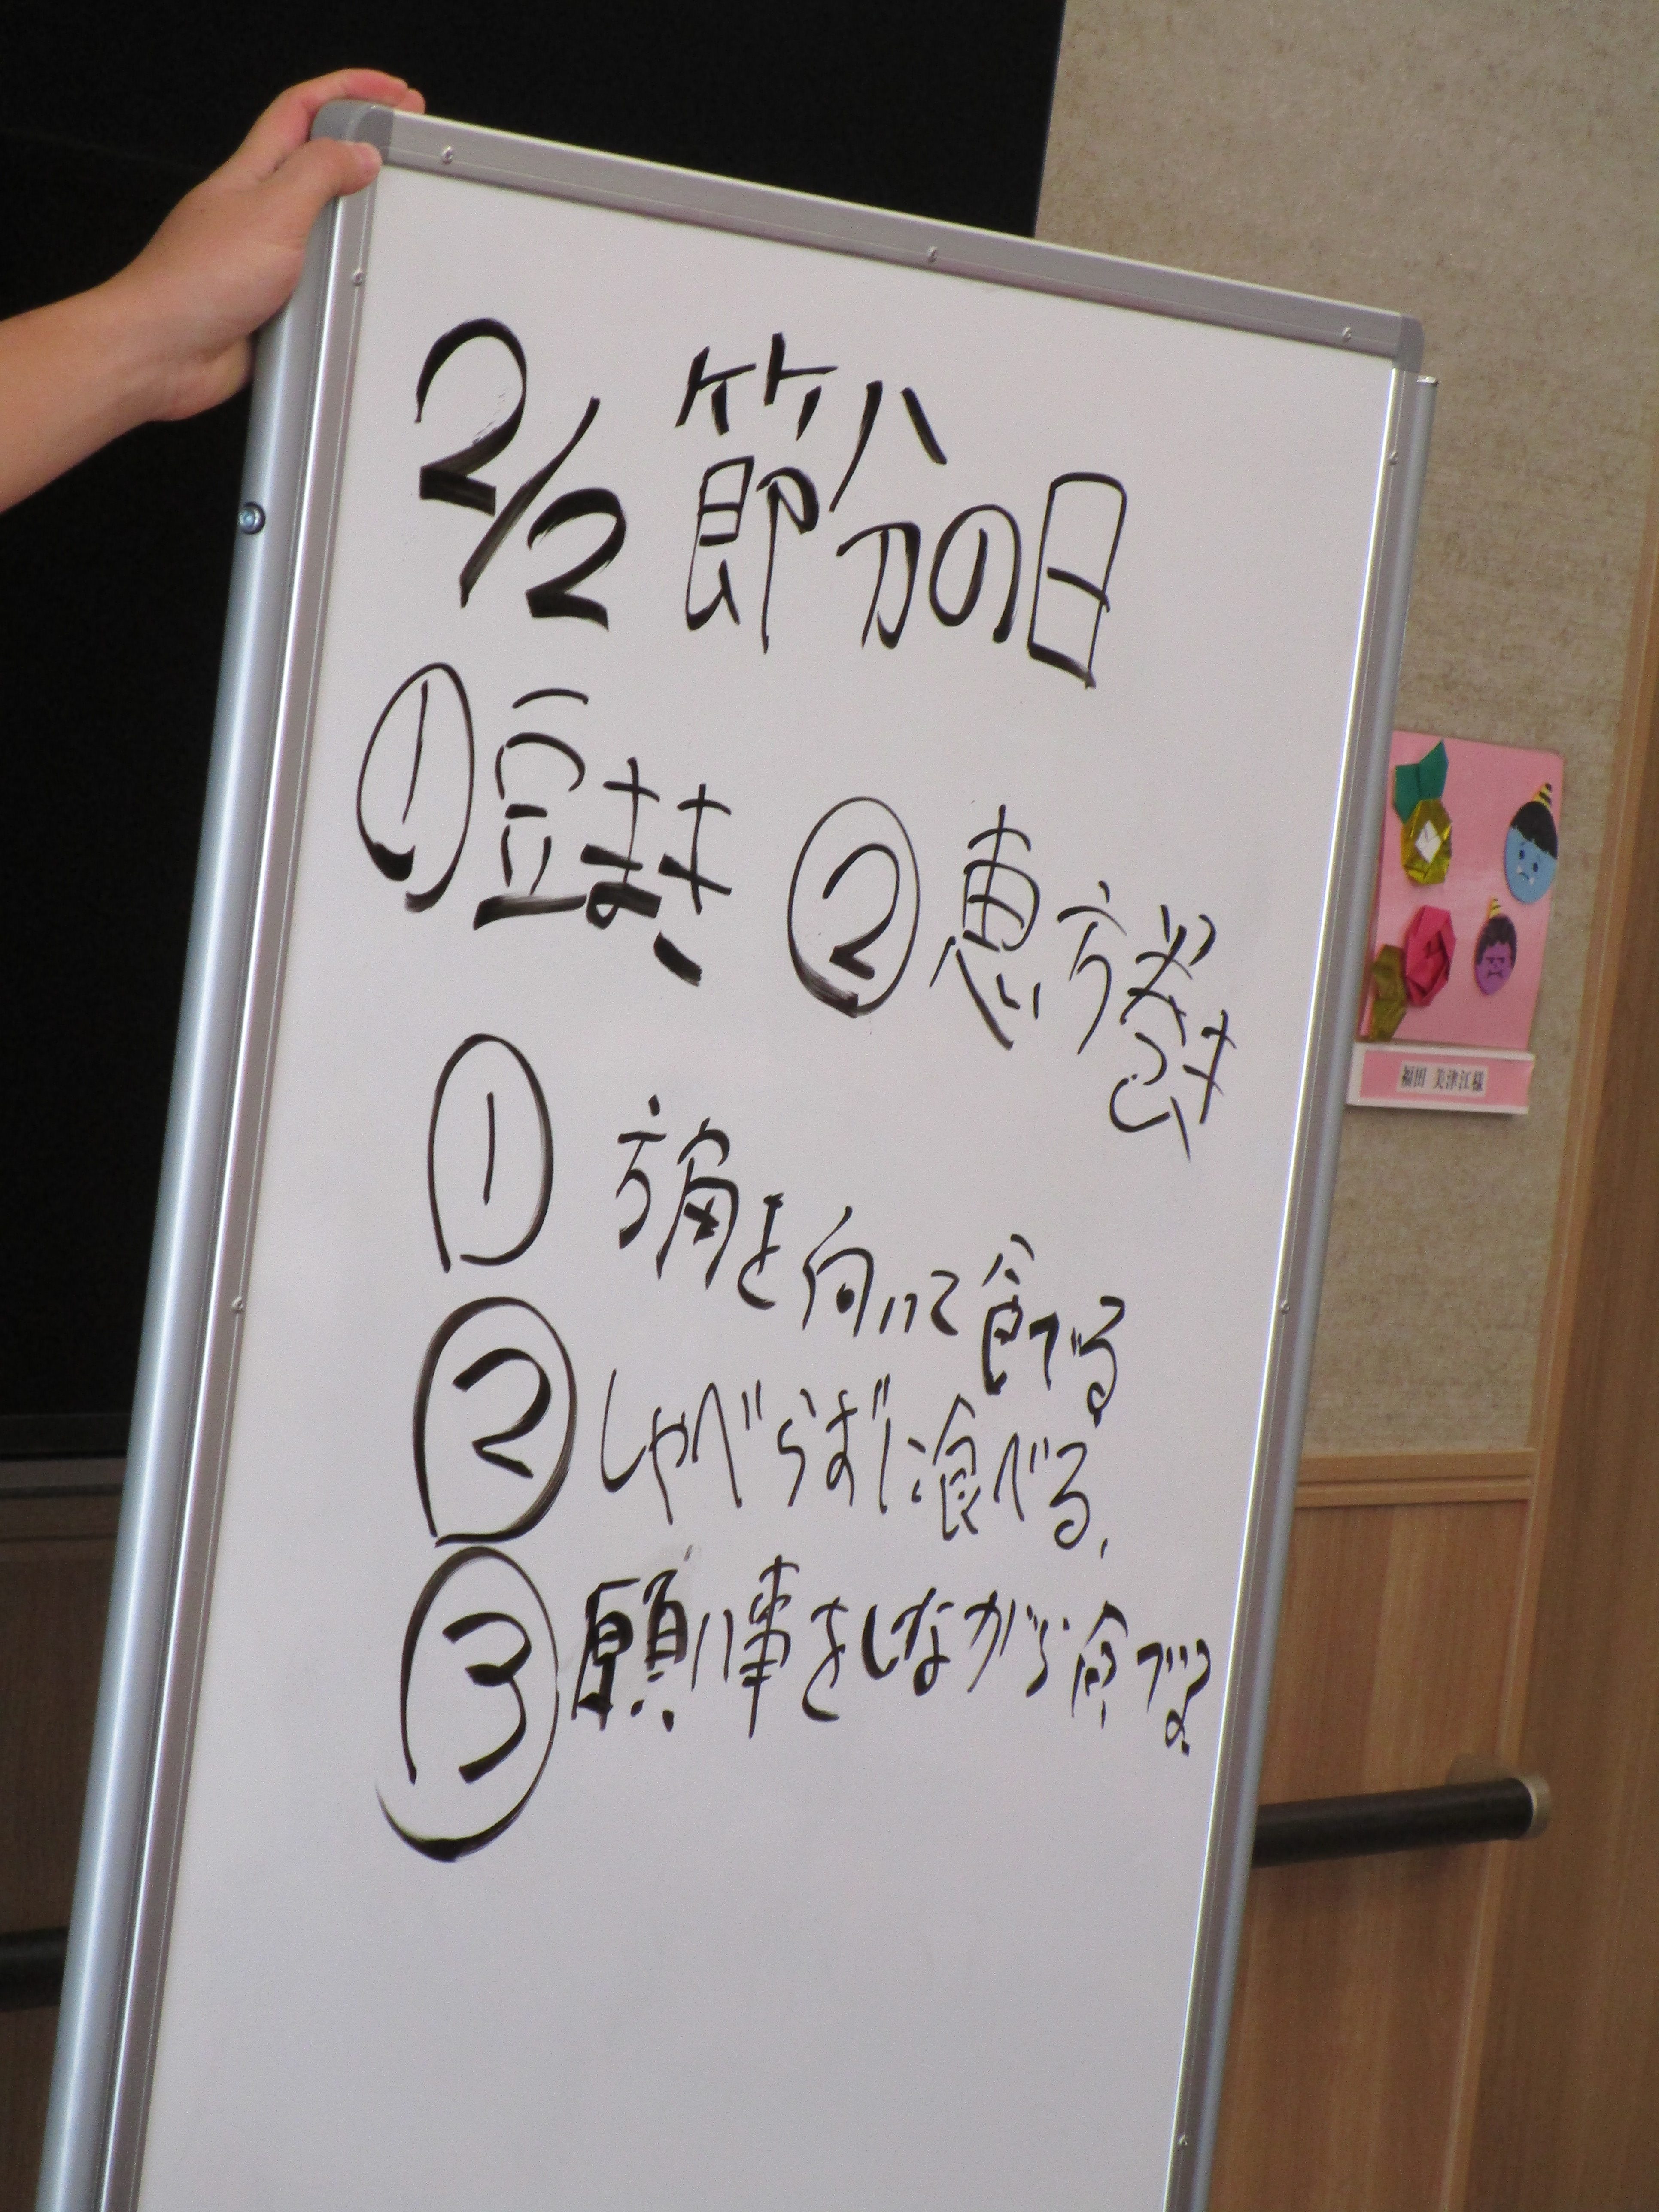 2/2 節分の日
①豆まき ②恵方巻き
① 方角を向いて食べる
② しゃべらずに食べる、
③ 願い事をしながら食べる
福田 美津江様